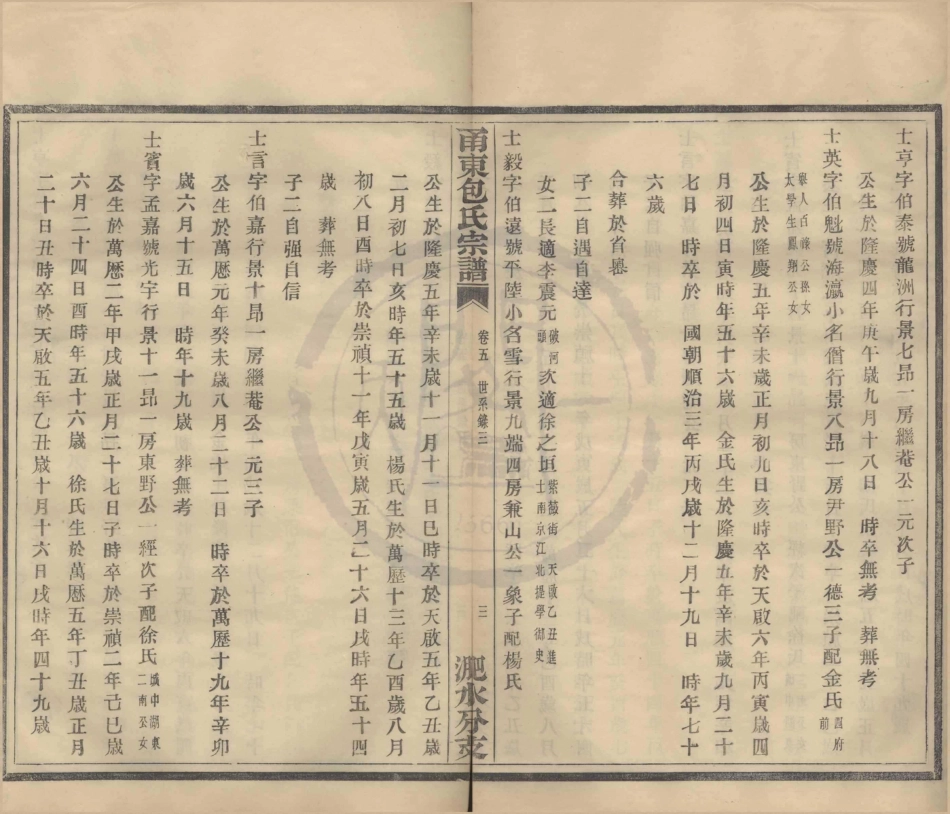 士亨字伯泰號龍洲行景七昻一房繼菴公一元次子
公生於隆慶四年庚午歲九月十八日　時卒無考　葬無考
士英字伯魁號海瀛小名僧行景八昻一房尹野公一德三子配金氏四府前
舉人百祿公孫女太學生鳳翔公女
公生於隆慶五年辛未歲正月初九日亥時卒於天啟六年丙寅歲四
月初四日寅時年五十六歲　金氏生於隆慶五年辛未歲九月二十
七日　時卒於　國朝順治三年丙戌歲十二月十九日　時年七十
六歲
合葬於首㟭
子二自遇自達
女二長適李震元破河頭次適徐之垣紫薇街天啟乙丑進士南京江北提學御史
士毅字伯遠號平陸小名雪行景九端四房兼山公一象子配楊氏
甬東包氏宗譜
卷五　世系錄三
三
淝水分支
公生於隆慶五年辛未歲十一月十一日巳時卒於天啟五年乙丑歲
二月初七日亥時年五十五歲　楊氏生於萬歷十三年乙酉歲八月
初八日酉時卒於崇禎十一年戊寅歲五月二十六日戌時年五十四
歲　葬無考
子二自强自信
士言字伯嘉行景十昻一房繼菴公一元三子
公生於萬歷元年癸未歲八月二十二日　時卒於萬歷十九年辛卯
歲六月十五日　時年十九歲　葬無考
士賓字孟嘉號光宇行景十一昻一房東野公一經次子配徐氏城中湖東二南公女
公生於萬歷二年甲戌歲正月二十七日子時卒於崇禎二年己巳歲
六月二十四日酉時年五十六歲　徐氏生於萬歷五年丁丑歲正月
二十日丑時卒於天啟五年乙丑歲十月十六日戌時年四十九歲